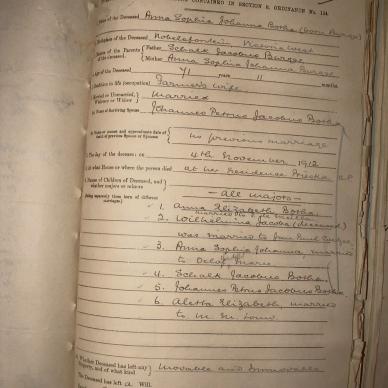 CONTAINED IN SECTION 9, ORDINANCE No. 104
Name of the Deceased Anna Sophia Johanna Botha (born Burger)
Birthplace of the Deceased Victoria West
Names of the Parents of the deceased. Father Schalk Jacobus Burger
Mother Anna Sophia Johanna Burger
Age of the Deceased 71 years 11 months
Condition in life (occupation) Farmer's wife
Married or Unmarried, Widower or Widow Married
Name of Surviving Spouse Johannes Petrus Jacobus Botha
Name or names and approximate date of death of previous Spouse or Spouses no previous marriage
The day of the decease: on 4th November 1912
At what House or where the person died at her residence Prieska
Names of Children of Deceased, and whether majors or minors — all majors —
1. Anna Elizabeth Botha
2. Wilhelmina Jacoba (deceased)
was married to
3. Anna Sophia Johanna, married
to
4. Schalk Jacobus Botha
5. Johannes Petrus Jacobus Botha
6. Aletta Elizabeth, married
to
Whether Deceased has left any Property, and of what kind Movable and Immovable
The Deceased has left a Will.